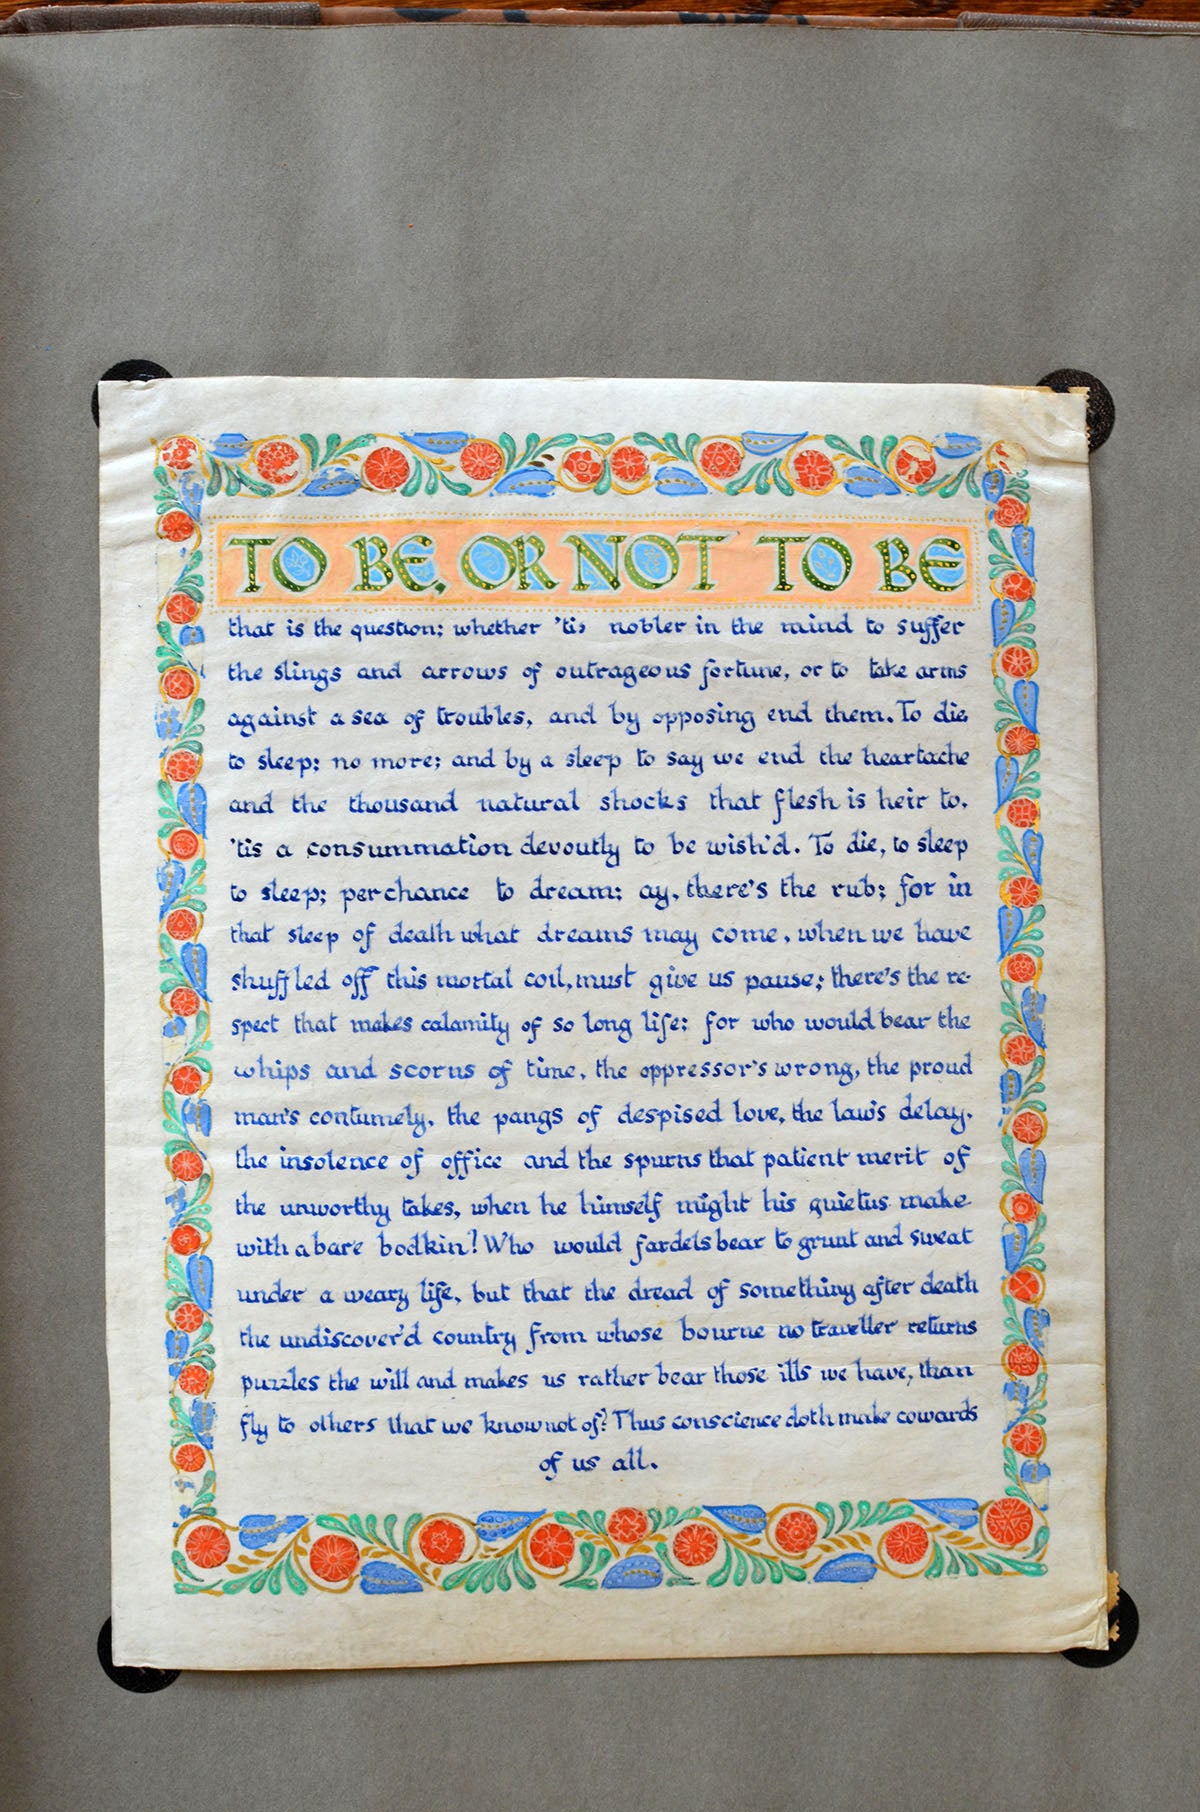 TO BE, OR NOT TO BE
that is the question; whether 'tis nobler in the mind to suffer
the slings and arrows of outrageous fortune, or to take arms
against a sea of troubles, and by opposing end them. To die
to sleep; no more; and by a sleep to say we end the heartache
and the thousand natural shocks that flesh is heir to,
'tis a consummation devoutly to be wish'd. To die, to sleep
to sleep; perchance to dream; ay, there's the rub; for in
that sleep of death what dreams may come, when we have
shuffled off this mortal coil, must give us pause; there's the re-
spect that makes calamity of so long life; for who would bear the
whips and scorns of time, the oppressor's wrong, the proud
man's contumely, the pangs of despised love, the law's delay,
the insolence of office and the spurns that patient merit of
the unworthy takes, when he himself might his quietus make
with a bare bodkin? Who would fardels bear to grunt and sweat
under a weary life, but that the dread of something after death
the undiscover'd country from whose bourne no traveller returns
puzzles the will and makes us rather bear those ills we have, than
fly to others that we know not of? Thus conscience doth make cowards
of us all.